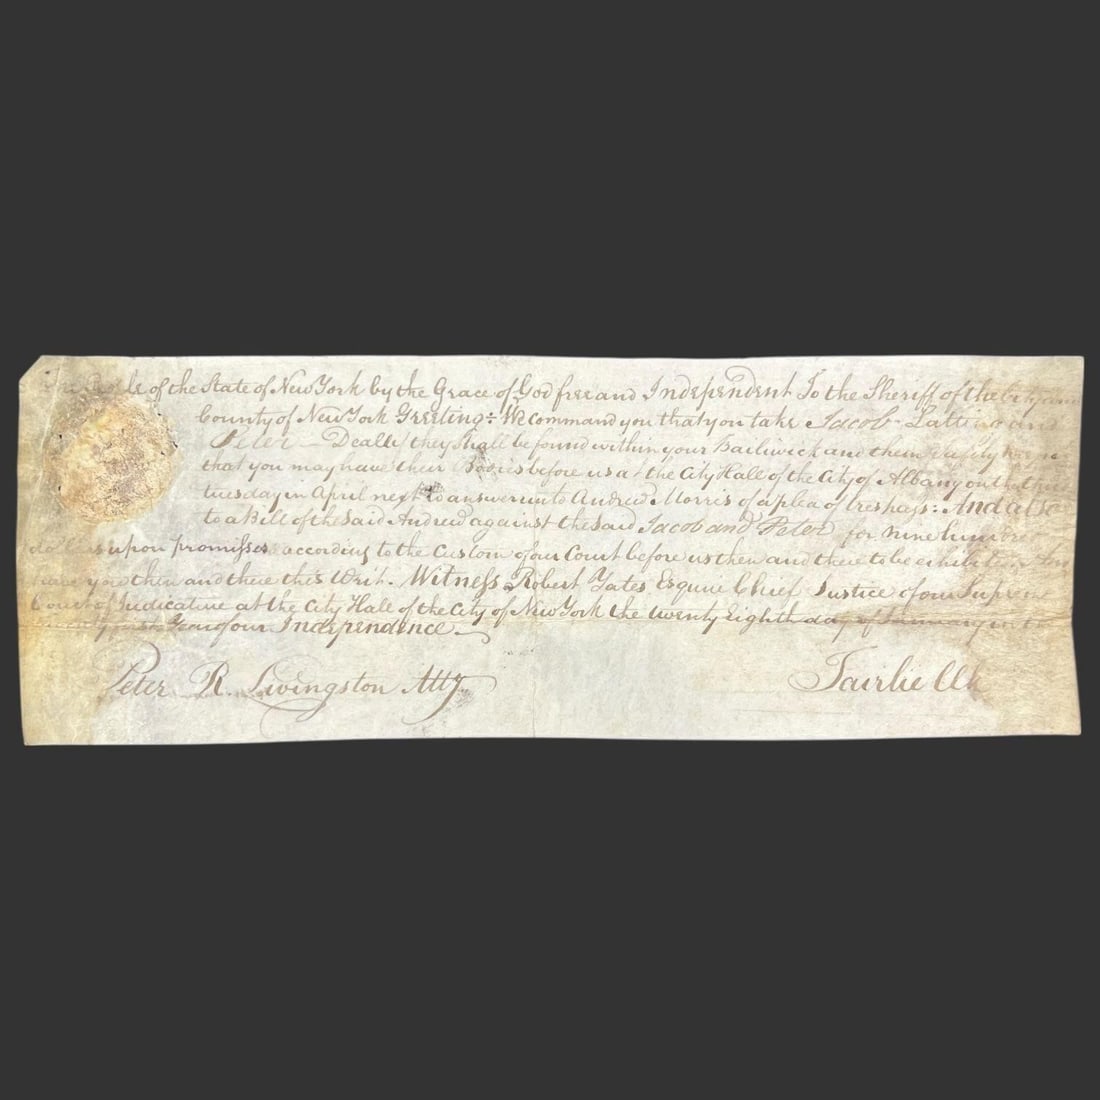 of the State of New York by the Grace of God free and Independent To the Sheriff of the City and
County of New York Greeting: We command you that you take Jacob Latting and
Peter Deall if they shall be found within your Bailiwick and them safely
that you may have their Bodies before us at the City Hall of the City of Albany on the
tuesday in April next to answer unto Andrew Morris of a plea of trespass: And also
to a Bill of the said Andrew against the said Jacob and Peter for nine hundred
dollars upon promises according to the Custom of our Court before us then and there to be exhibited
have you then and there this Writ. Witness Robert Yates Esquire Chief Justice of our Supreme
Court of Judicature at the City Hall of the City of New York the twenty Eighth day of January in the
Year of our Independence
Peter R. Livingston Atty
Fairlie Clk